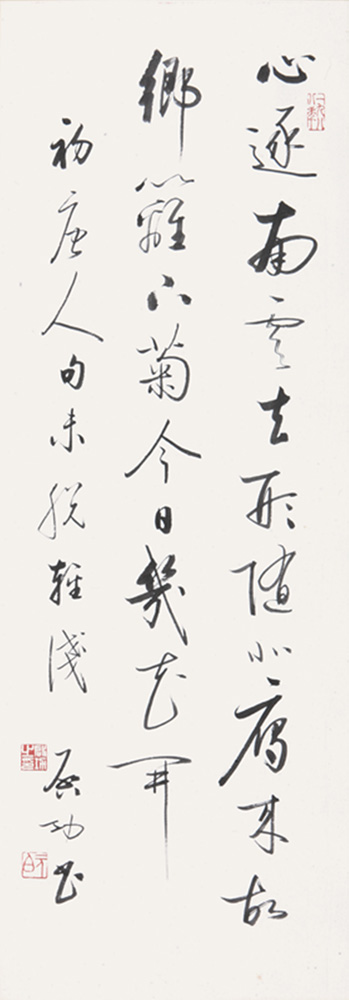 心逐南雲去形隨北鴈來故
鄉籬下菊今日幾花開
初唐人句未脫輕淺 啟功書